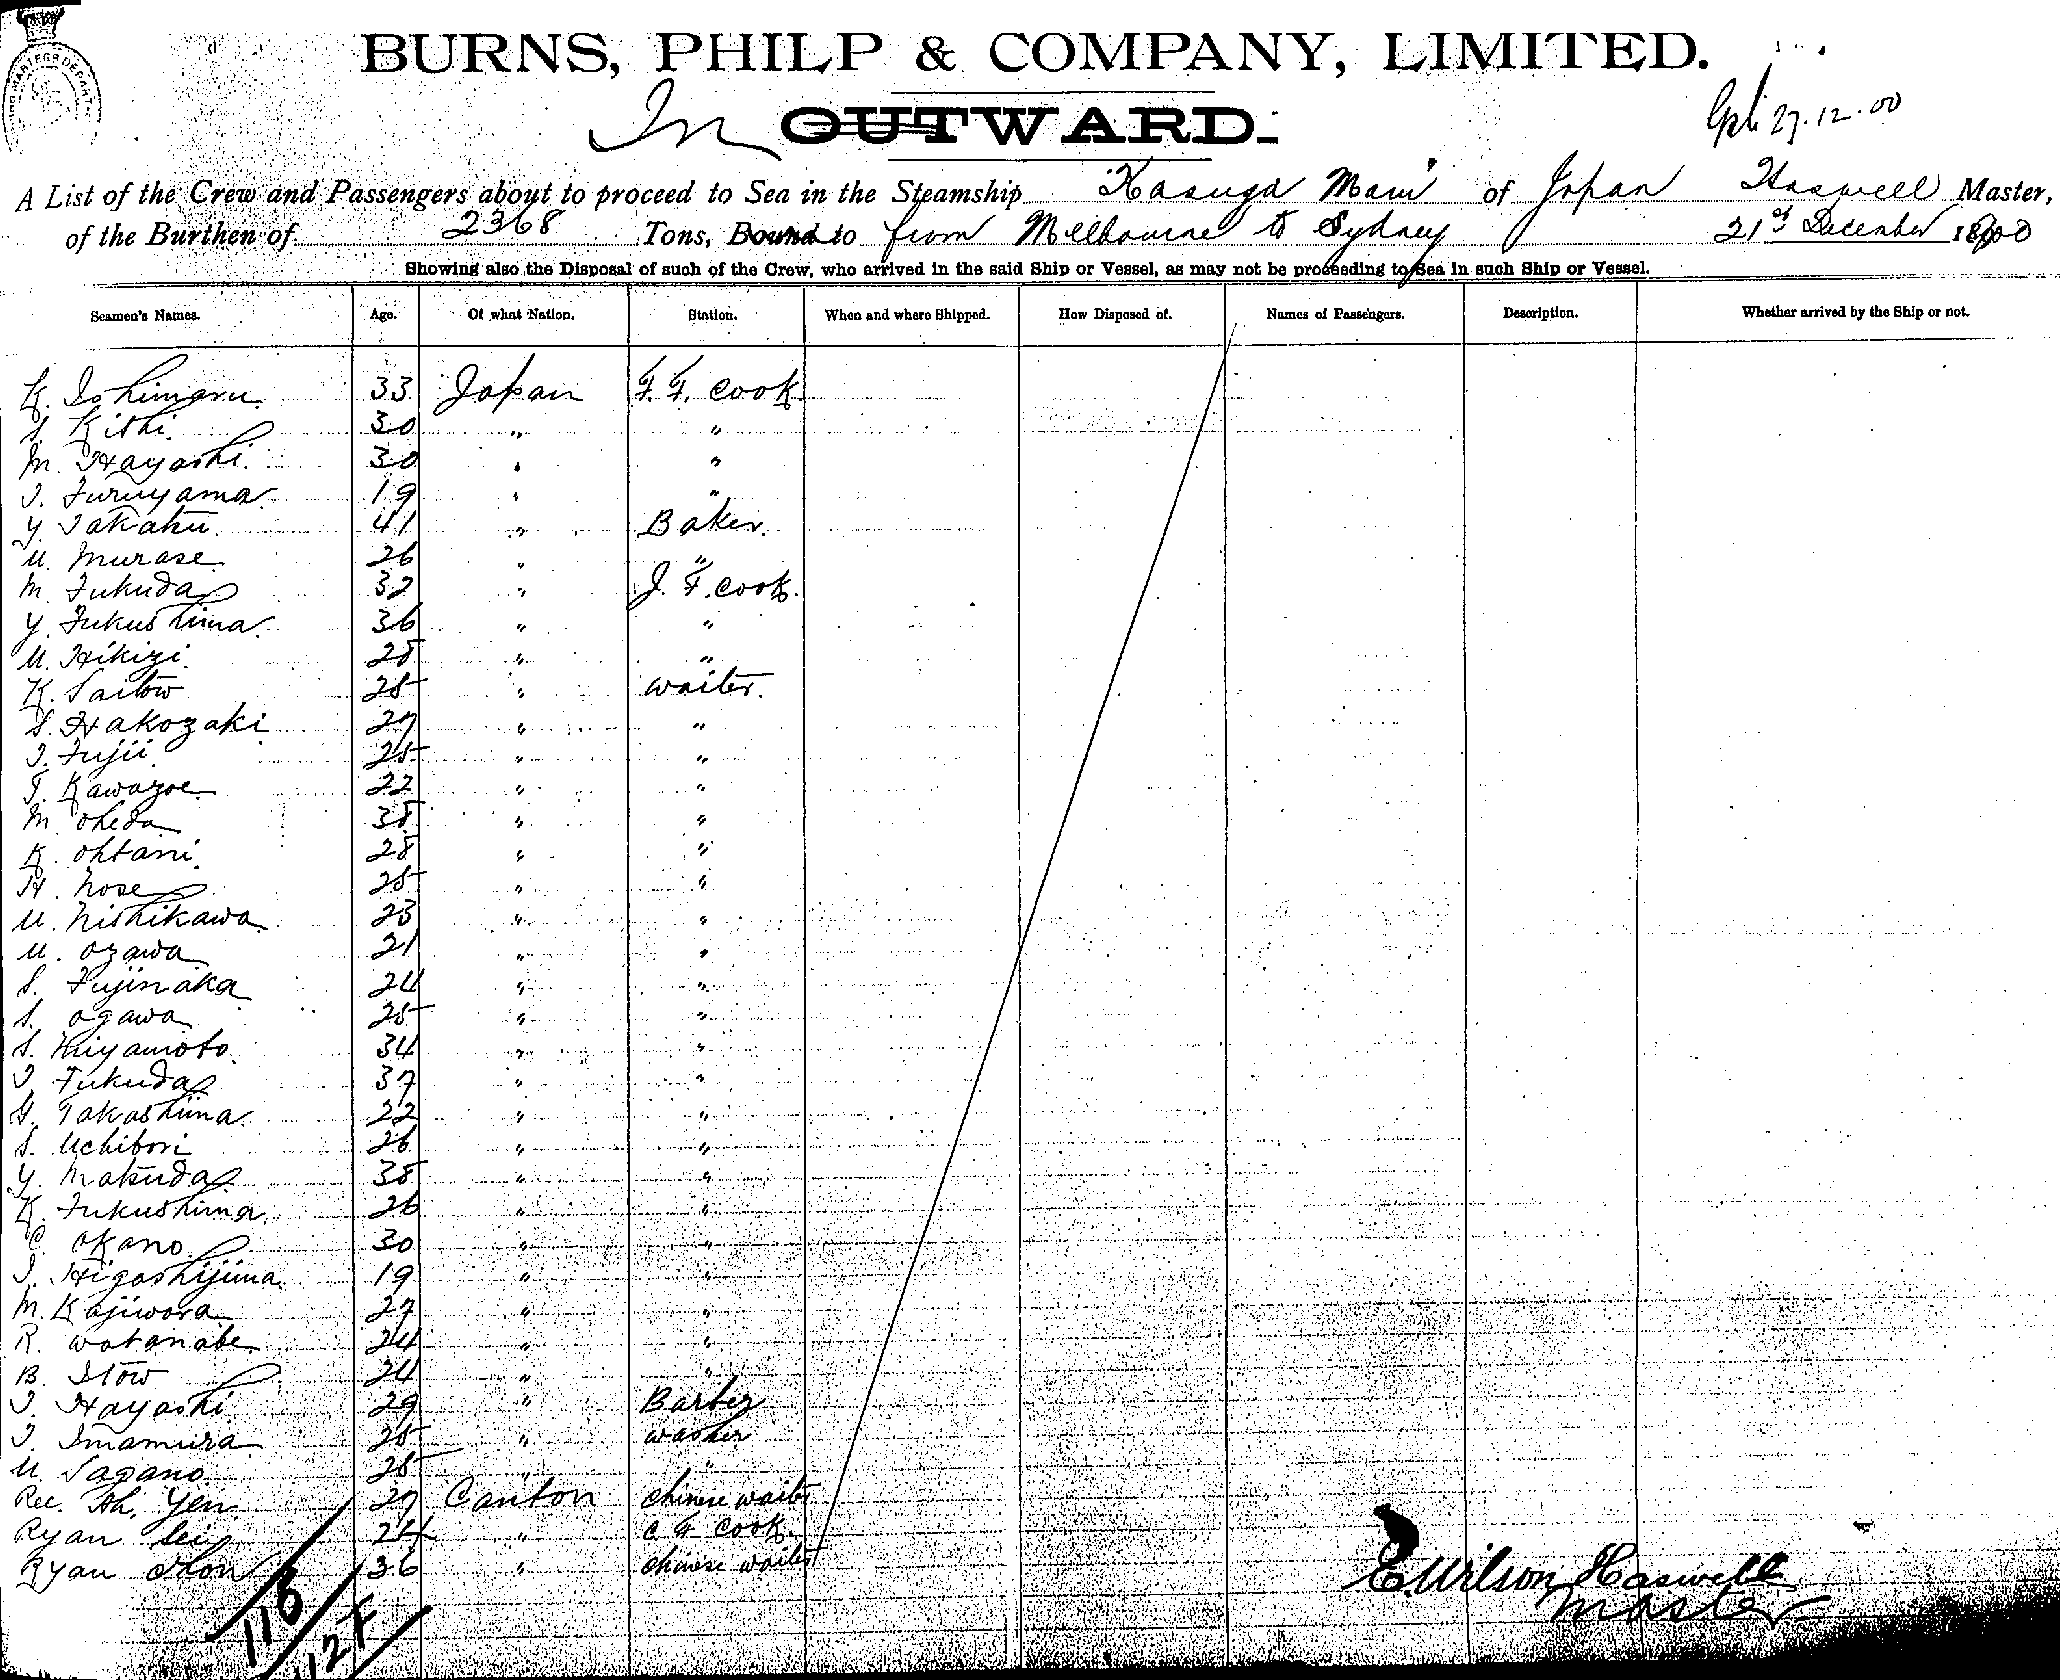 BURNS, PHILP & COMPANY, LIMITED.
In OUTWARD.
27.12.00
A List of the Crew and Passengers about to proceed to Sea in the Steamship Kasuga Maru of Japan Haswell Master,
of the Burthen of 2368 Tons, Bound to from Melbourne to Sydney 21st December 1900
Showing also the Disposal of such of the Crew, who arrived in the said Ship or Vessel, as may not be proceeding to Sea in such Ship or Vessel.
Seamen's Names. Age. Of what Nation. Station. When and where Shipped. How Disposed of. Names of Passengers. Description. Whether arrived by the Ship or not.
K. Ishimaru 33 Japan F. F. cook
S. Kishi 30 " "
M. Hayashi 30 " "
I. Furuyama 19 " "
Y. Takaku 41 " Baker.
U. Murase 26 " "
M. Fukuda 32 " J. F. cook.
Y. Fukushima 36 " "
U. Hikizi 28 " "
K. Saitow 25 " waiter.
S. Hakozaki 27 " "
I. Fujii 25 " "
T. Kawazoe 22 " "
M. Oheda 38 " "
K. Ohtani 28 " "
H. Nose 25 " "
U. Nishikawa 23 " "
U. Ozawa 21 " "
S. Fujinaka 24 " "
S. Ogawa 25 " "
S. Miyamoto 34 " "
I. Fukuda 37 " "
H. Takashima 22 " "
S. Uchibori 26 " "
Y. Makuda 38 " "
K. Fukushima 26 " "
Okano 30 " "
I. Higashijima 19 " "
M. Kajiwara 27 " "
R. Watanabe 24 " "
B. Itow 24 " "
I. Hayashi 29 " Barber
I. Imamura 25 " washer
U. Sagano 25 " "
Ree. Ah. Yen 27 Canton chinese waiter
Ryan 24 " C F cook.
Ryan 36 " chinese waiter
116
124
E. Wilson Haswell
Master